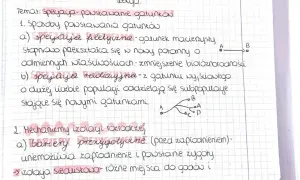 Temat: Specjacja - powstawanie gatunków
1. Sposoby powstawania gatunków
a) specjacja filetyczna - gatunek macierzysty
stopniowo przekształca się w nowy potomny o
odmiennych właściwościach - zmniejszenie bioróżnorodności
A B
b) specjacja radiacyjna - z gatunku wyjściowego
o dużej liczbie populacji oddzielają się subpopulacje
stające się nowymi gatunkami
A B C D
2. Mechanizmy izolacji rozrodczej
a) bariery prezygotyczne (przed zapłodnieniem)-
uniemożliwia zapłodnienie i powstanie zygoty
izolacja siedliskowa - różne miejsca do godów i